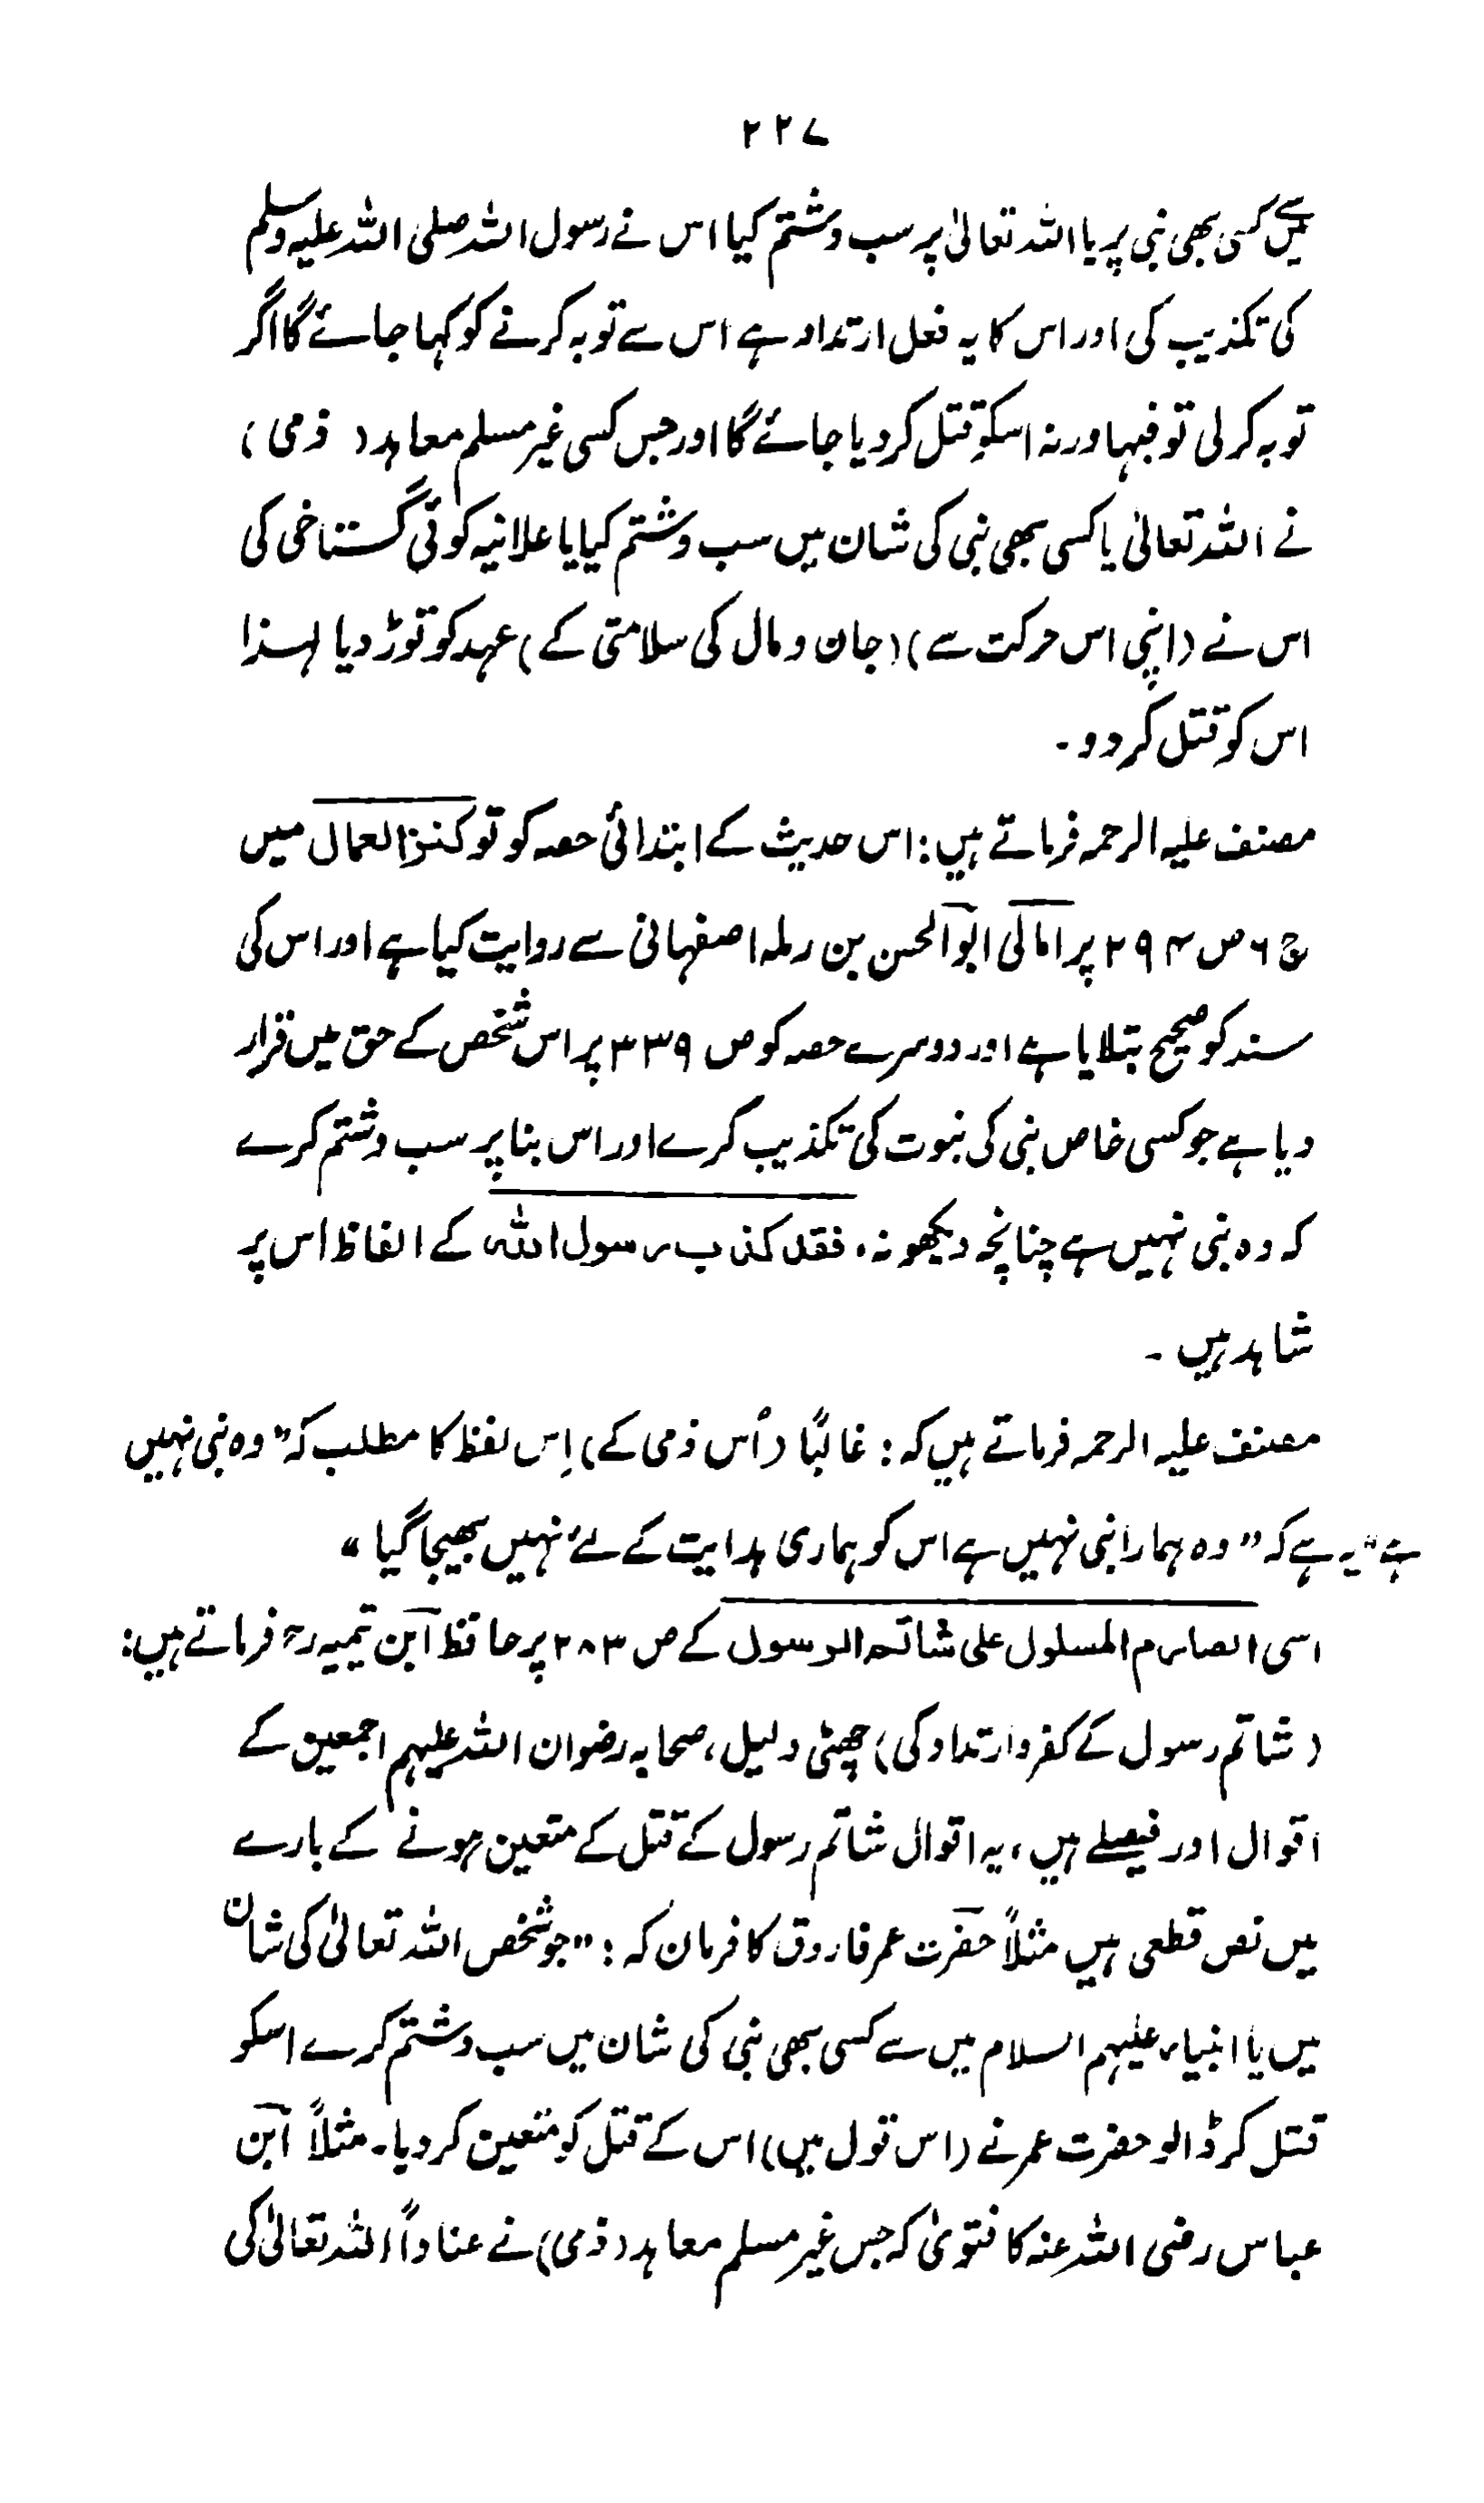 ۲۲۷
میں کسی بھی نبی پر یا اللہ تعالیٰ پر سب وشتم کیا اس نے رسول اللہ صلی اللہ علیہ وسلم
کی تکذیب کی اور اس کا یہ فعل ارتداد ہے اس سے توبہ کرنے کو کہا جائے گا اگر
توبہ کر لی تو فبہا ورنہ اسکو قتل کر دیا جائے گا اور جس کسی غیر مسلم معاہد (ذمی)
نے اللہ تعالیٰ یا کسی بھی نبی کی شان میں سب وشتم کیا یا علانیہ کوئی گستاخی کی
اس نے (اپنی اس حرکت سے) (جان و مال کی سلامتی کے) عہد کو توڑ دیا لہذا
اس کو قتل کر دو۔
مصنف علیہ الرحمہ فرماتے ہیں: اس حدیث کے ابتدائی حصہ کو تو کنز العمال میں
ج ۶ ص ۲۹۴ پر امالی ابو الحسن بن رملہ اصفہانی سے روایت کیا ہے اور اس کی
سند کو صحیح بتلایا ہے اور دوسرے حصہ کو ص ۳۳۹ پر اس شخص کے حق میں قرار
دیا ہے جو کسی خاص نبی کی نبوت کی تکذیب کرے اور اس بنا پر سب وشتم کرے
کہ وہ نبی نہیں ہے چنانچہ دیکھو نہ، فقد کذب رسول اللہ کے الفاظ اس پر
شاہد ہیں۔
مصنف علیہ الرحمہ فرماتے ہیں کہ: غالبًا (اُس ذمی کے) اِس لفظ کا مطلب کہ "وہ نبی نہیں
ہے" یہ ہے کہ "وہ ہمارا نبی نہیں ہے اس کو ہماری ہدایت کے لئے نہیں بھیجا گیا"
اسی الصارم المسلول علی شاتم الرسول کے ص ۲۸۳ پر حافظ ابن تیمیہ رح فرماتے ہیں:
(شاتم رسول کے کفر وارتداد کی) چھٹی دلیل، صحابہ رضوان اللہ علیہم اجمعین کے
اقوال اور فیصلے ہیں، یہ اقوال شاتم رسول کے قتل کے متعین ہونے کے بارے
میں نص قطعی ہیں مثلاً حضرت عمر فاروق کا فرمان کہ: "جو شخص اللہ تعالیٰ کی شان
میں یا انبیاء علیہم السلام میں سے کسی بھی نبی کی شان میں سب وشتم کرے اسکو
قتل کر ڈالو حضرت عمر نے (اس قول میں) اس کے قتل کو متعین کر دیا۔ مثلاً ابن
عباس رضی اللہ عنہ کا فتویٰ کہ جس غیر مسلم معاہد (ذمی) نے عناداً اللہ تعالیٰ کی